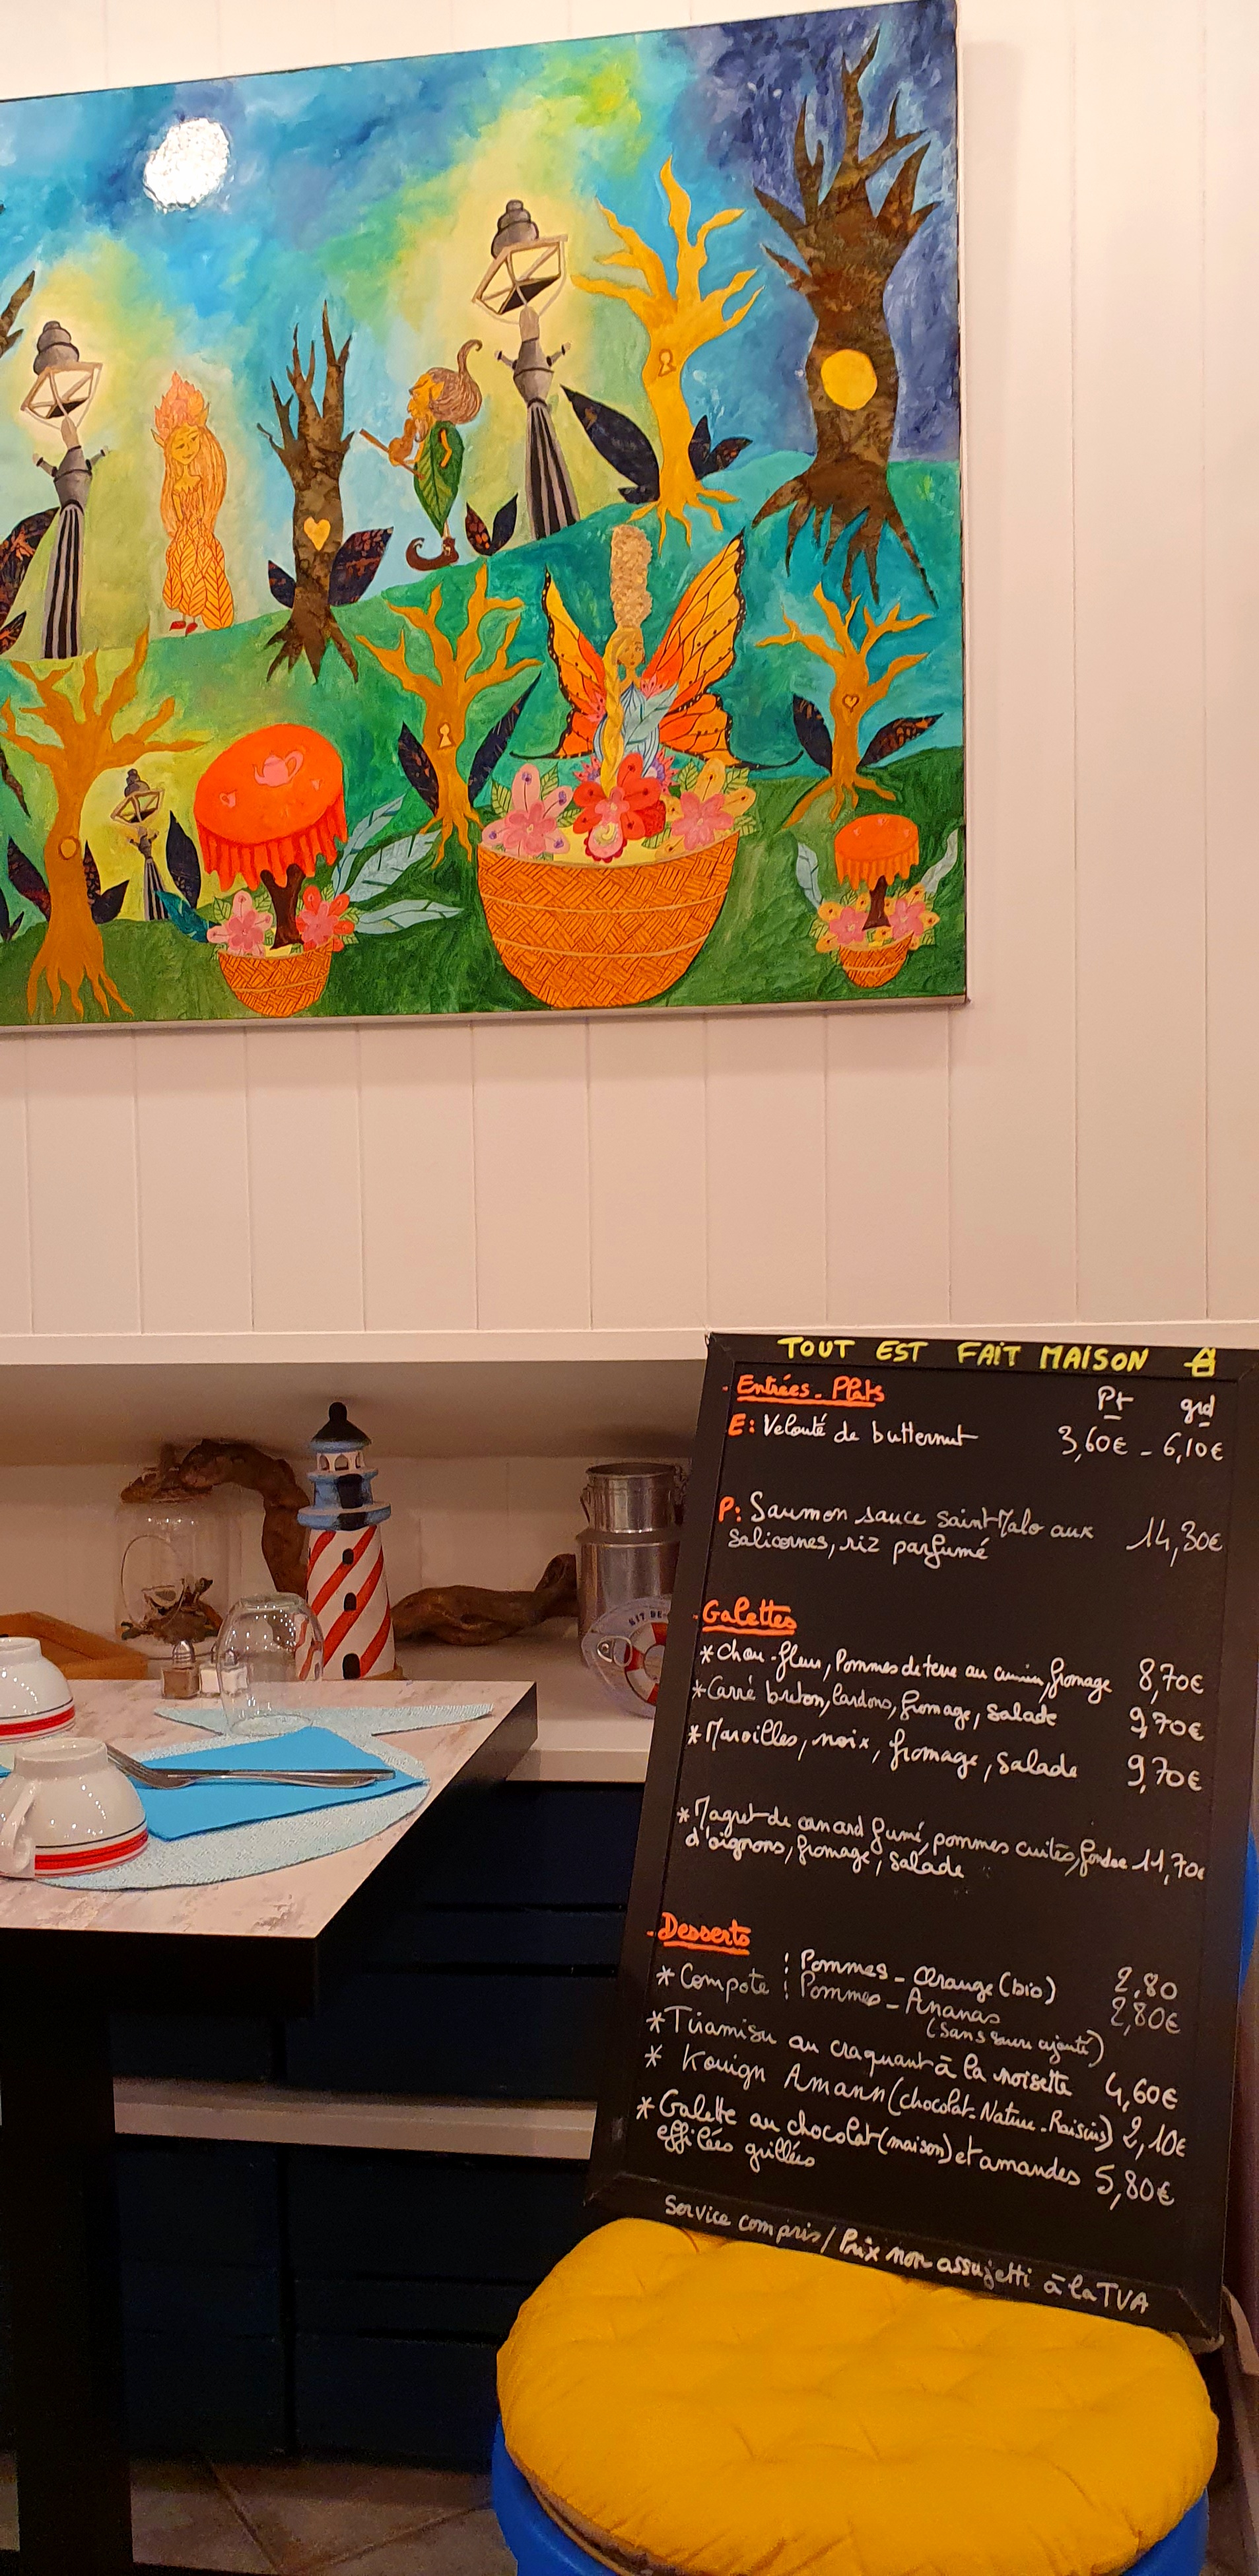 TOUT EST FAIT MAISON
- Entrées - Plats Pt grd
E: Velouté de butternut 3,60€ - 6,10€
P: Saumon sauce Saint Malo aux 14,30€
salicornes, riz parfumé
- Galettes
* Chou-fleur, Pommes de terre au cumin, fromage 8,70€
* Carré breton, lardons, fromage, salade 9,70€
* Maroilles, noix, fromage, salade 9,70€
* Magret de canard fumé, pommes cuites, fondue 11,70€
d'oignons, fromage, salade
- Desserts
* Compote : Pommes - Orange (bio) 2,80
: Pommes - Ananas 2,80€
(sans sucre ajouté)
* Tiramisu au craquant à la noisette 4,60€
* Kouign Amann (chocolat - Nature - Raisins) 2,10€
* Galette au chocolat (maison) et amandes 5,80€
effilées grillées
Service compris / Prix non assujetti à la TVA
KIT DE